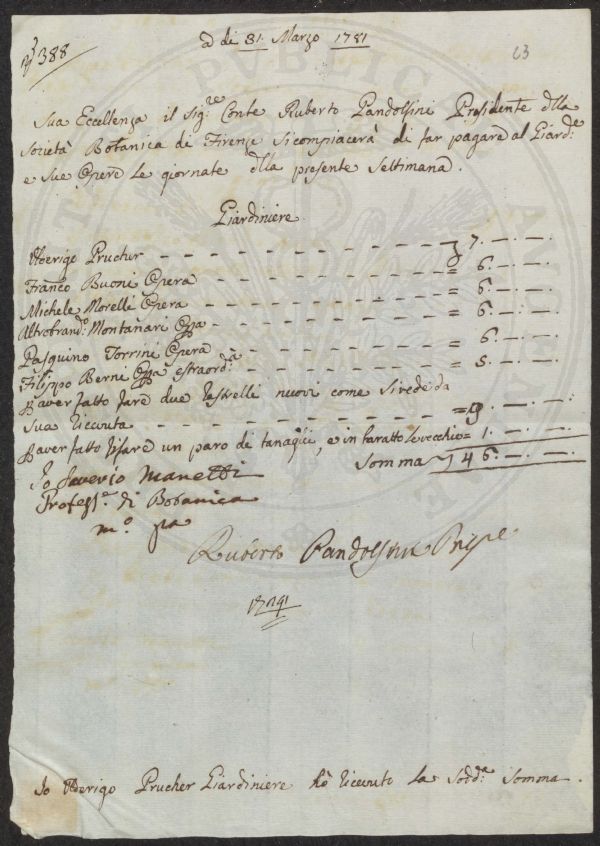 388
a di 31. Marzo 1781
23
Sua Eccellenza il Sig:re Conte Ruberto Pandolfini Presidente dlla
Società Botanica di Firenze si compiacerà di far pagare al Giard:e
e sue Opere le giornate dlla presente Settimana.
Giardiniere
Aderigo Pruchur - - - 7. - . -
Franco Buoni Opera - - - = 6. - . -
Michele Morelli Opera - - - = 6. - . -
Altobrand:o Montanari Oppa - - - = 6. - . -
Pasquino Torrini Opera - - - = 6. - . -
Filippo Berni Oppa estraord:a - - - = 5. - . -
P aver fatto fare due rastrelli nuovi come si vede da
sua ricevuta - - - = 9. - . -
P aver fatto rifare un paro di tanaglie, e in baratto le vecchie = 1. - . -
Somma - 46. - . -
Io Saverio Manetti
Profess:e di Botanica
m:o pa
Ruberto Pandolfini Presse
Io Aderigo Prucher Giardiniere hò ricevuto la Sodd:a Somma.